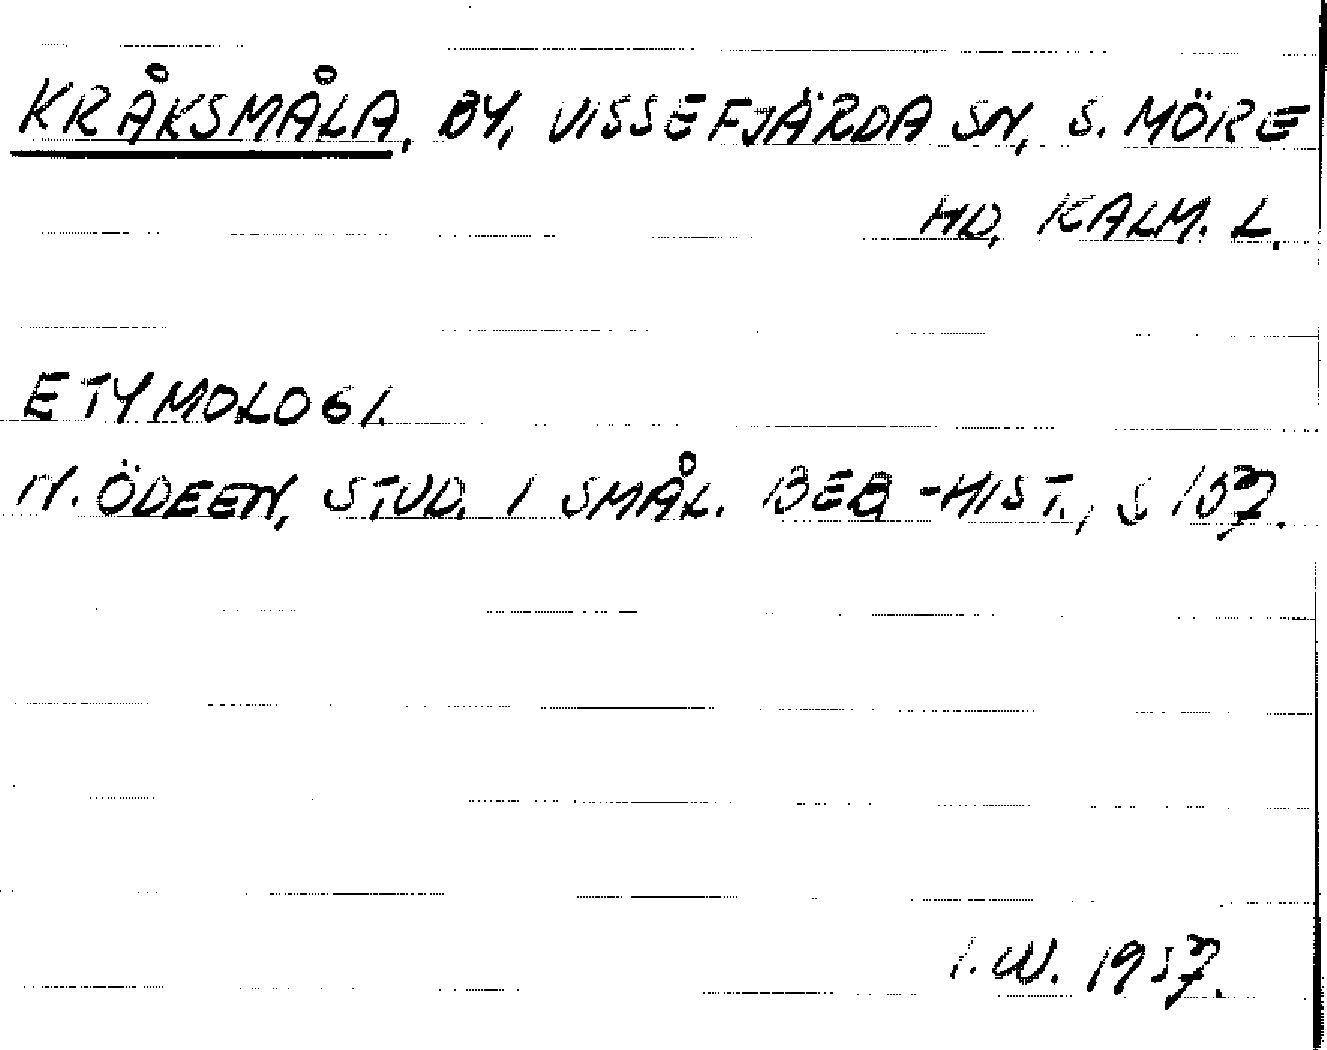 KRÅKSMÅLA, BY, VISSEFJÄRDA SN, S. MÖRE
HD, KALM. L.
ETYMOLOGI.
N. ÖDEEN, STUD. I SMÅL. BEB-HIST., S 107.
I.W. 1957.